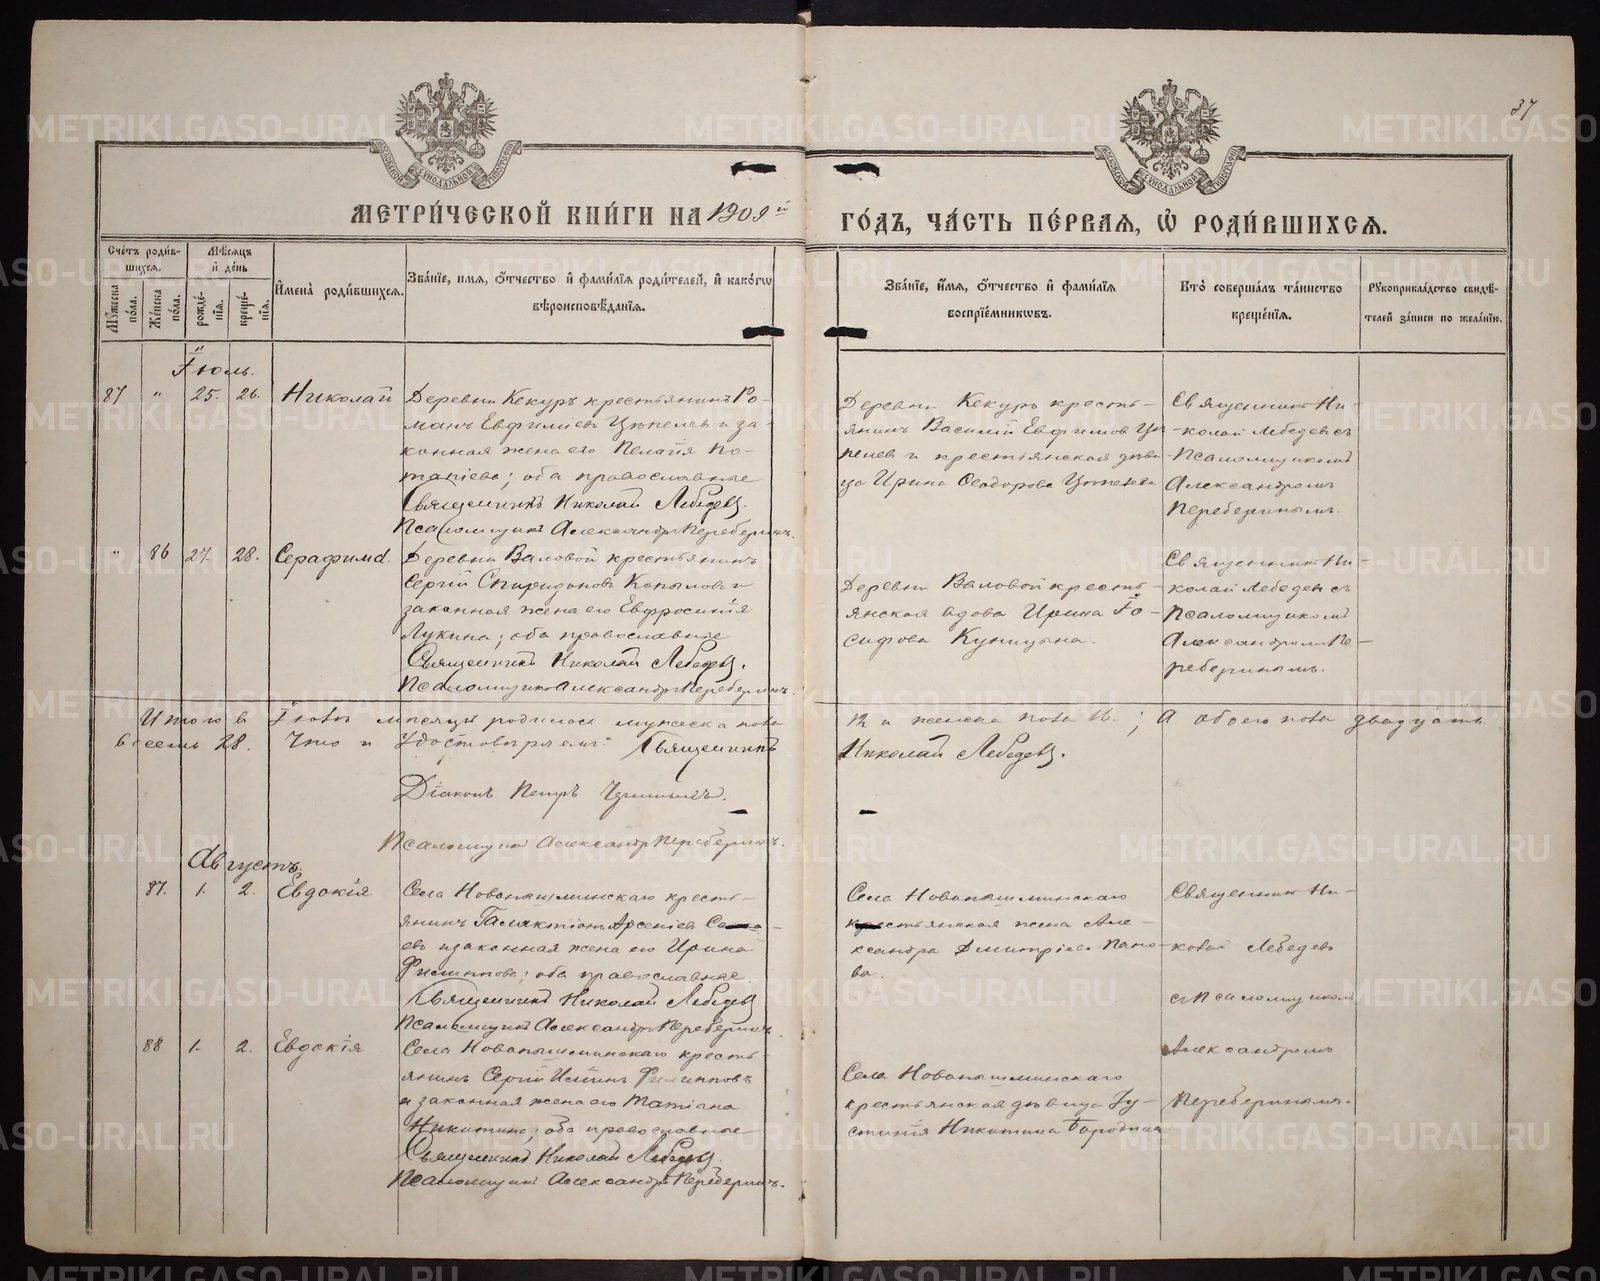 37
МОСКОВСКОЙ СѴНОДАЛЬНОЙ ТИПОГРАФІИ
МОСКОВСКОЙ СѴНОДАЛЬНОЙ ТИПОГРАФІИ
МЕТРИ́ЧЕСКОЙ КНИ́ГИ НА 1909й ГО́ДЪ, ЧА́СТЬ ПЕ́РВАЯ, Ѡ РОДИ́ВШИХСЯ.
Сче́тъ роди́в-
шихся.
Мѣ́сяцъ
и де́нь
Мꙋ́жеска по́ла.
Же́нска по́ла.
рожде́-
нїя.
креще́-
нїя.
Имена̀ роди́вшихся.
Зва́нїе, имя, о́тчество и фами́лїя роди́телей, и како́гѡ
вѣроисповѣ́данїя.
Зва́нїе, и́мя, о́тчество и фами́лїя
воспрїе́мникѡвъ.
Кто̀ соверша́лъ та́инство
креще́нїя.
Рꙋкоприкла́дство свидѣ́-
телей за́писи по жела́нїю.
Іюль.
87 " 25. 26. Николай
Деревни Кекуръ крестьянинъ Ро-
манъ Евфиміевъ Цюпелевъ и за-
конная жена его Пелагія По-
тапіева; оба православные
Священникъ Николай Лебедевъ.
Псаломщикъ Александръ Переберинъ.
Деревни Кекуръ кресть-
янинъ Василій Евфимов Цю-
пелев и крестьянская дѣви-
ца Ирина Ѳеодорова Цюпелева
Священникъ Ни-
колай Лебедевъ съ
Псаломщикомъ
Александромъ
Переберинымъ.
" 86 27. 28. Серафима.
Деревни Валовой крестьянинъ
Сергій Спиридоновъ Копыловъ и
законная жена его Евфросинія
Лукина; оба православные
Священникъ Николай Лебедевъ.
Псаломщикъ Александръ Переберинъ.
Деревни Валовой кресть-
янская вдова Ирина Іо-
сифова Куницына.
Священникъ Ни-
колай Лебедевъ съ
Псаломщикомъ
Александромъ Пе-
реберинымъ.
Итого в Іюлѣ мѣсяцѣ родилось мужеска пола 12 и женска пола 16.; А обоего пола двадцать
восемь 28. Что и удостовѣряемъ: Священникъ Николай Лебедевъ.
Діаконъ Петръ
Псаломщикъ Александръ Переберинъ.
Августъ.
87. 1. 2. Евдокія
Села Новопышминскаго кресть-
янинъ Галактіонъ Арсеніев
евъ и законная жена его Ирина
Филиппова; оба православные.
Священникъ Николай Лебедевъ
Псаломщикъ Александръ Переберинъ.
Села Новопышминскаго
крестьянская жена Але-
ксандра Димитріева Попо-
ва.
Священникъ Ни-
колай Лебедевъ
съ Псаломщикомъ
Александромъ
Переберинымъ.
88 1. 2. Евдокія
Села Новопышминскаго кресть-
янинъ Сергій Иліинъ Филипповъ
и законная жена его Татіана
Никитина; оба православные
Священникъ Николай Лебедевъ.
Псаломщикъ Александръ Переберинъ.
Села Новопышминскаго
крестьянская дѣвица Іу-
стинія Никитина Бородина
METRIKI.GASO-URAL.RU